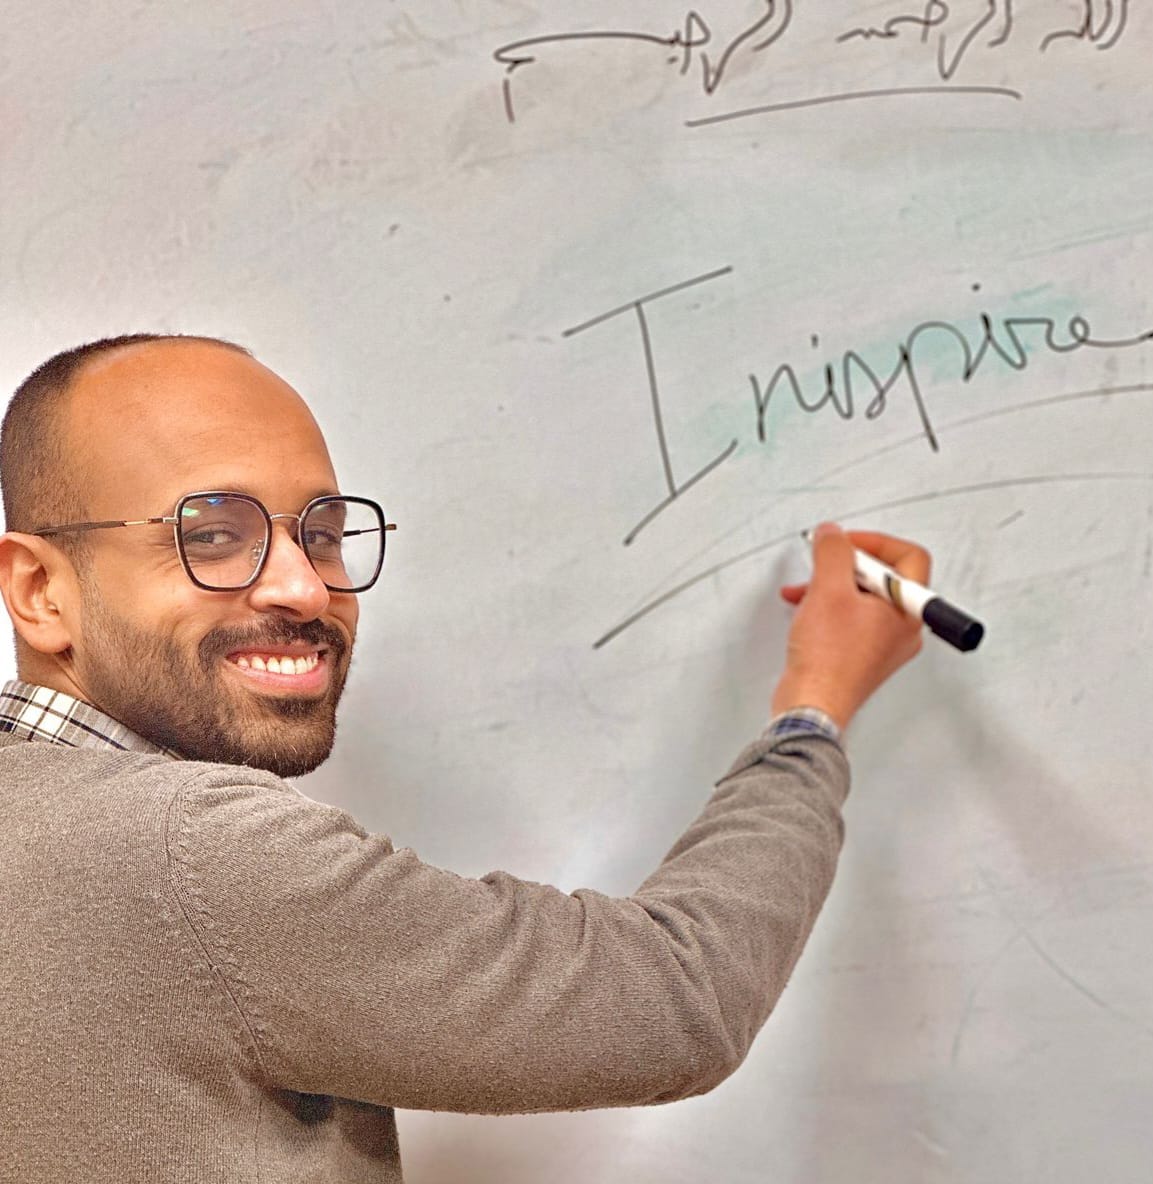 الله الرحمن الرحيم
Inspire